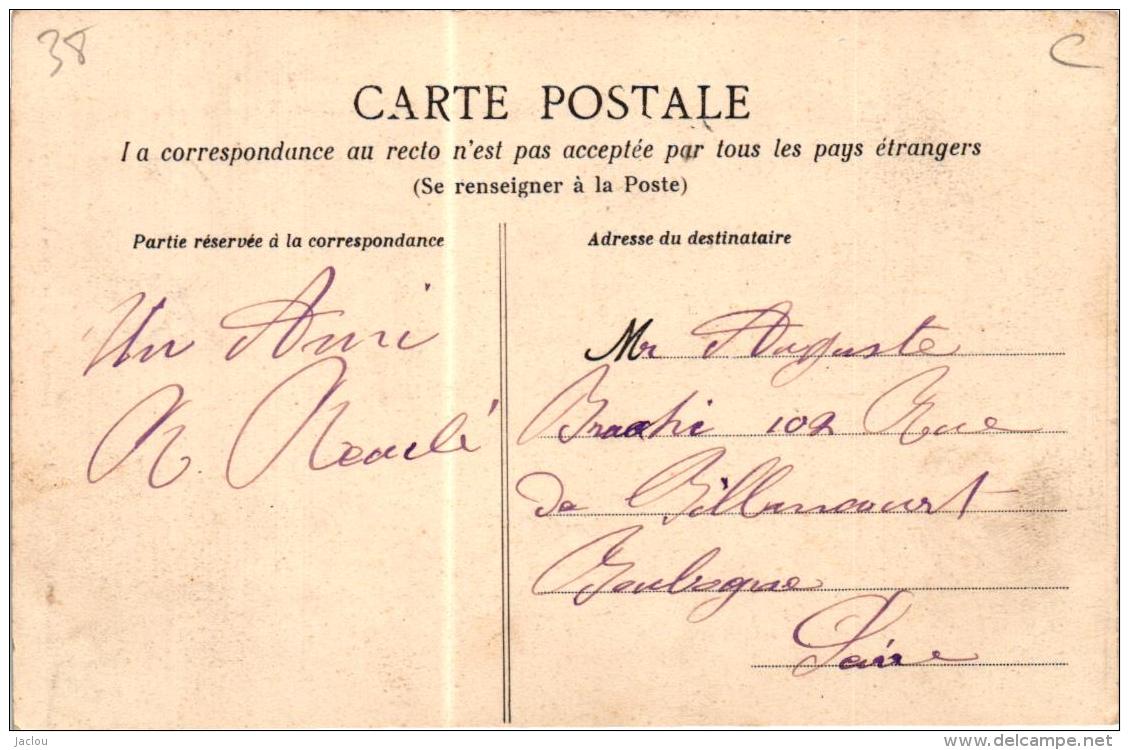 38
C
CARTE POSTALE
La correspondance au recto n'est pas acceptée par tous les pays étrangers
(Se renseigner à la Poste)
Partie réservée à la correspondance
Un Ami
Adresse du destinataire
Mr Auguste
102 Rue
de Billancourt
Boulogne
Seine
Jaclou
www.delcampe.net